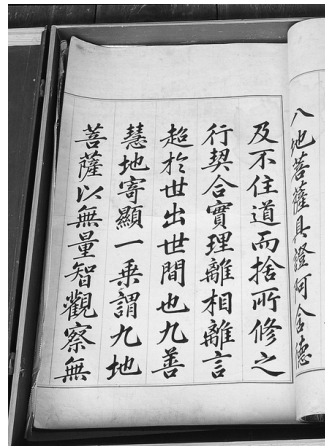 八地菩薩具證阿含德
及不住道而捨所修之
行契合實理離相離言
超於世出世間也九善
慧地寄顯一乗謂九地
菩薩以無量智觀察無